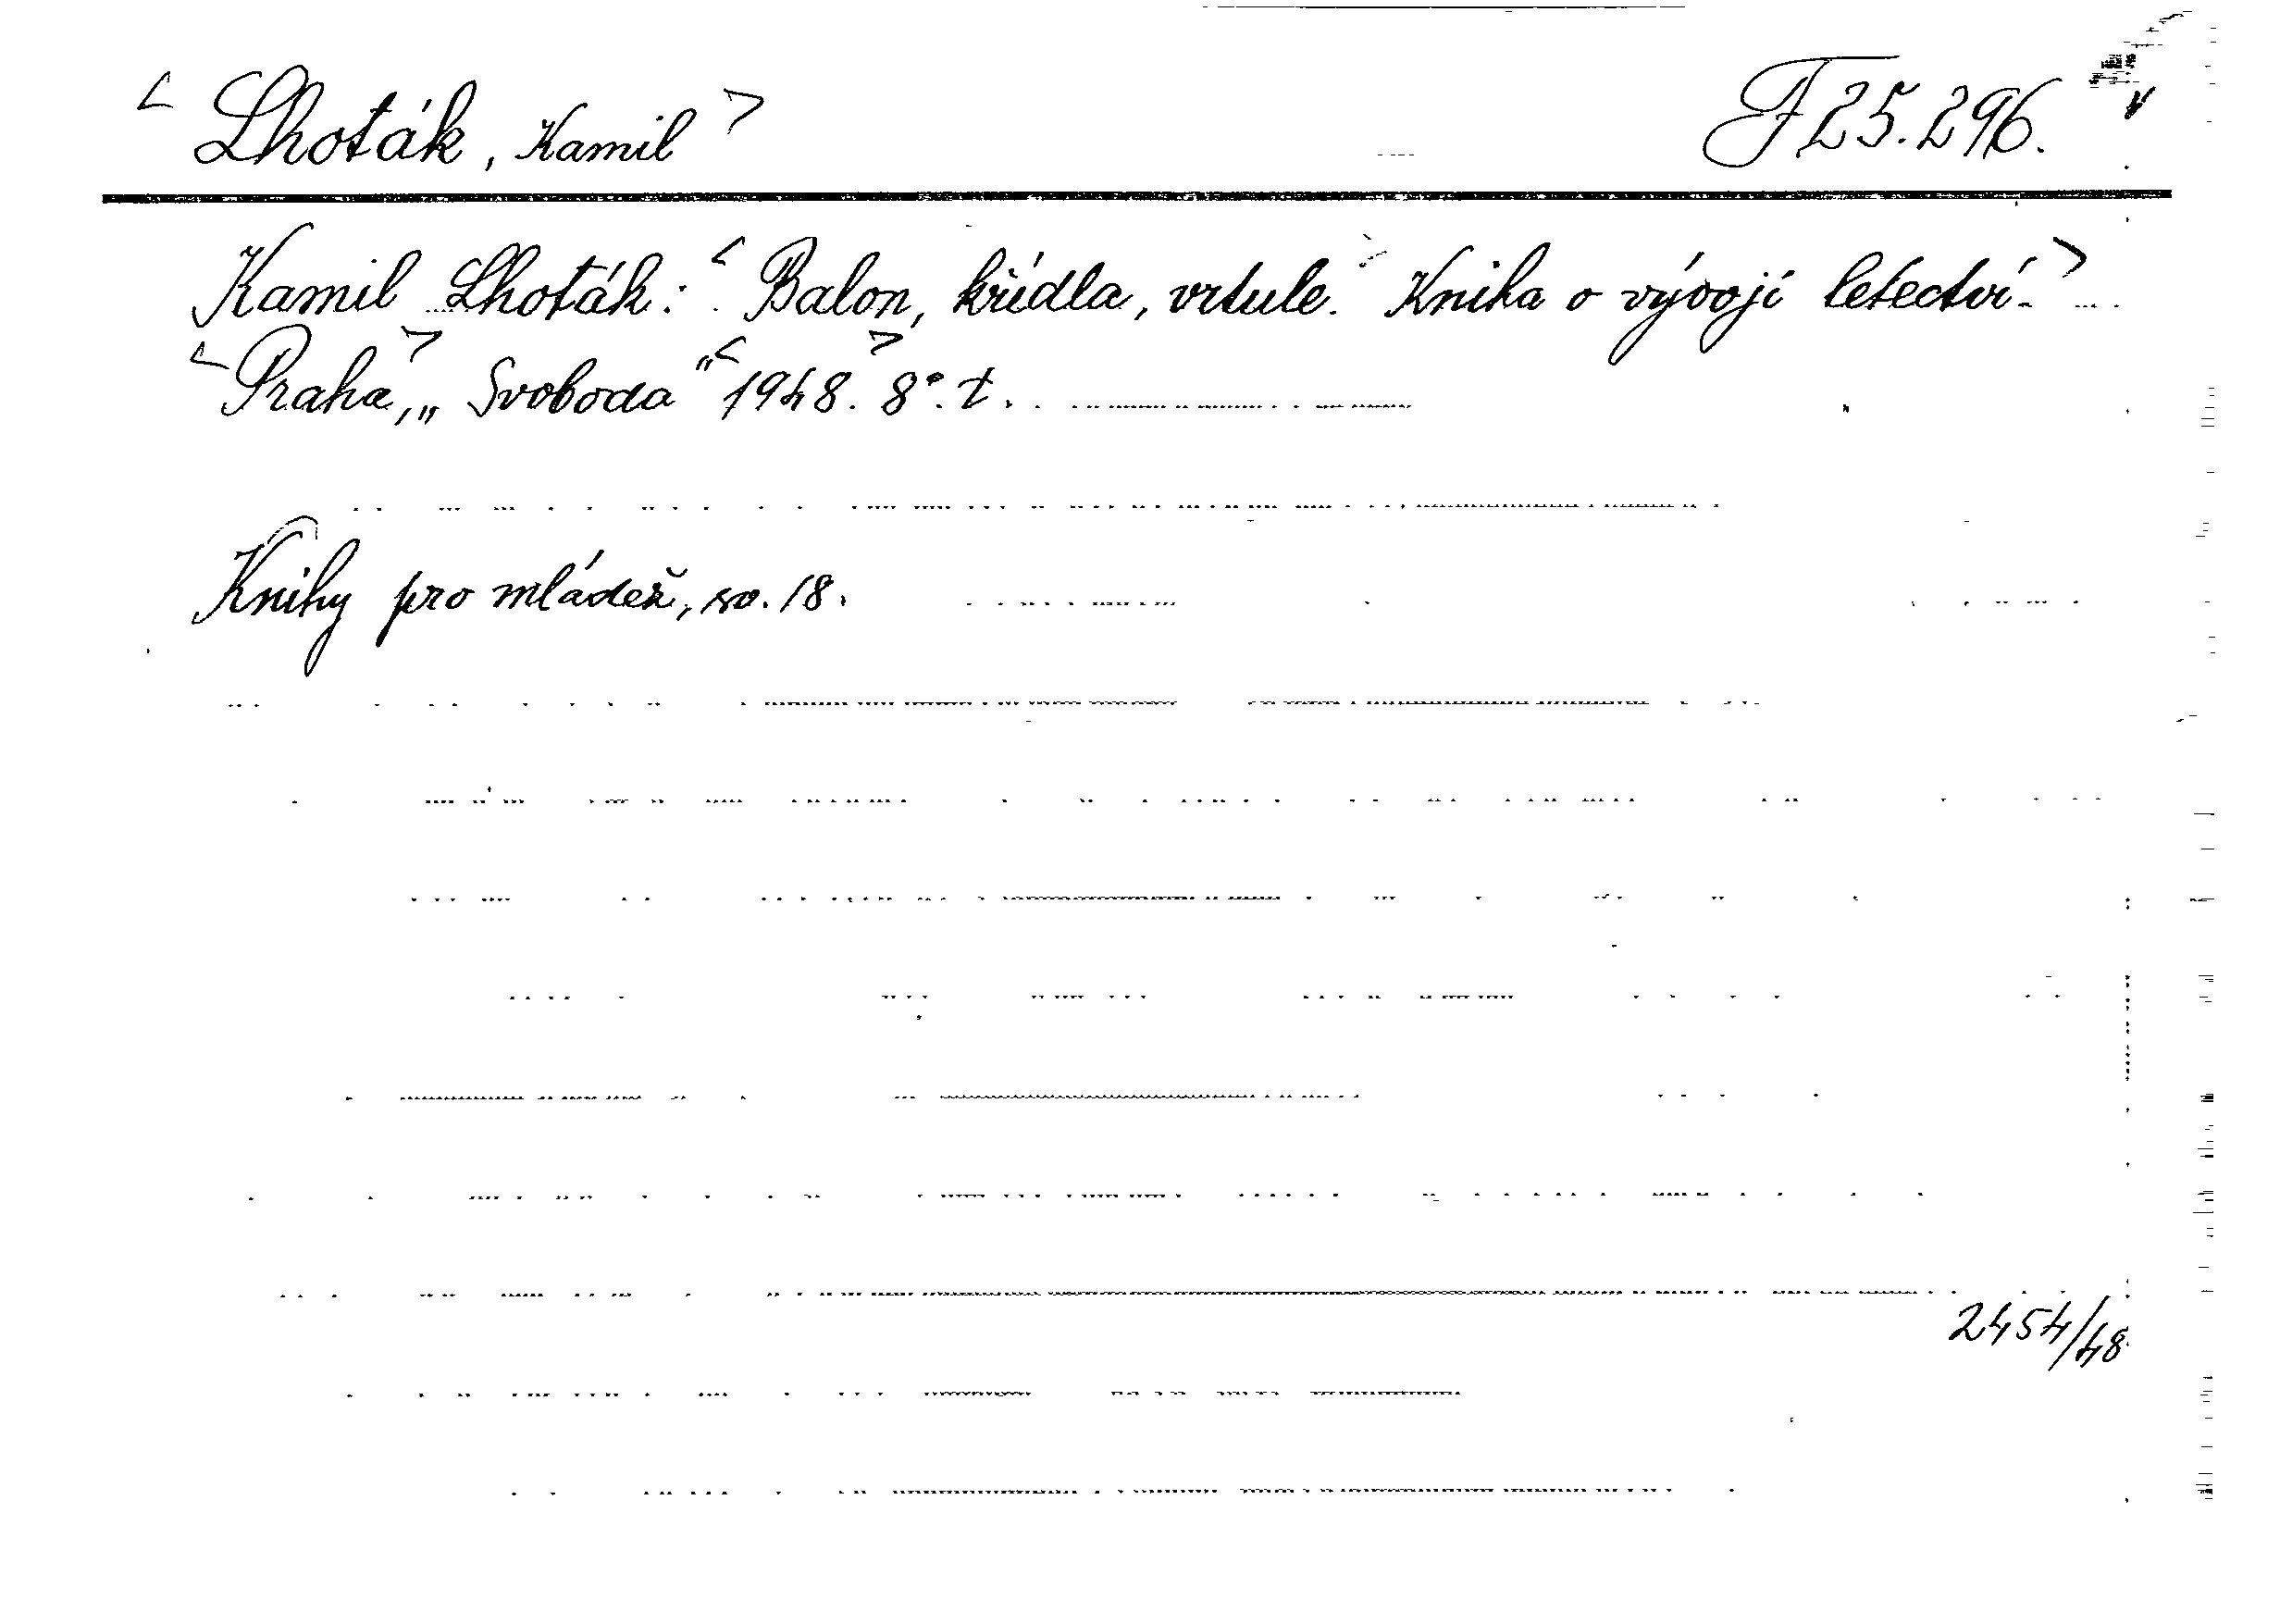 < Lhoták, Kamil > F 25.296.
Kamil Lhoták: < Balon, křídla, vrtule. Kniha o vývoji letectví. >
< Praha, > „Svoboda“ < 1948. > 8°. t.
Knihy pro mládež, sv. 18.
2454/48